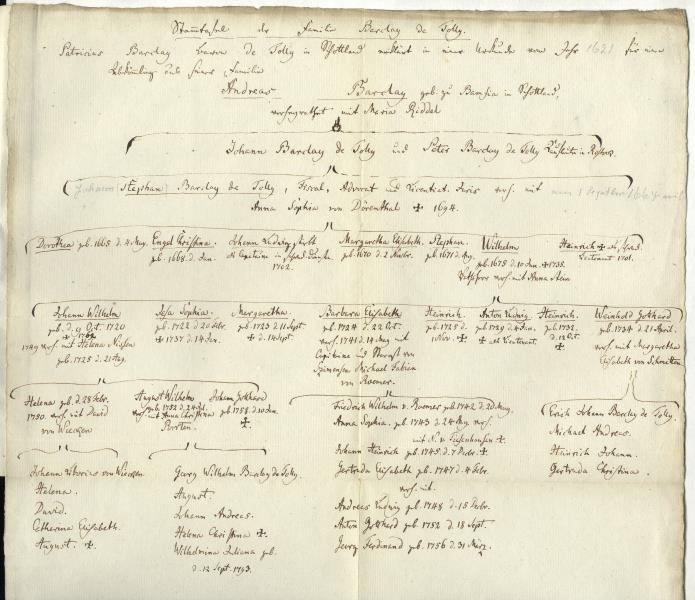 Stammtafel der Familie Barclay de Tolly.
Patricius Barclay Baron de Tolly in Schottland in einer Urkunde vom Jahr 1621 für eine
Abstämmling aus seiner Familie
Andreas Barclay geb. zu Bamfia in Schottland,
verheyrathet mit Maria Riddel
Johann Barclay de Tolly und Peter Barclay de Tolly Kaufleute in Rostock.
Johann Stephan Barclay de Tolly, Fiscal, Advocat und Licentiat. Juris verh. mit
Anna Sophia von Dörenthal ✠ 1694.
Dorothea gb. 1665 d. 4 Aug.
Engel Christina. gb. 1668. d. Jan.
Johann Ludwig starb als Capitaine in 1702.
Margaretha Elisabeth. gb. 1670 d. 2 Novbr.
Stephan. gb. 1671 d. Aug.
Wilhelm gb. 1675 d. 10 Jan. ✠ 1735. Rathsherr verh. mit Anna Stein
Heinrich ✠ als Lieutenant 1701.
Johann Wilhelm gb. d. 9 Oct. 1720 ✠ 1762 1749 verh. mit Helena Nissen gb. 1725 d. 21 Aug.
Sophia. gb. 1722 d 20 Febr. ✠ 1737 d. 14 Jan.
Margaretha. gb. 1723 d 11 Sept ✠ d. 14 Sept.
Barbara Elisabeth gb. 1724 d. 22 Oct. verh. 1741 d. 14 Aug mit Capitaine und Michael Fabian von Roemer.
Heinrich gb. 1725 d. 1 Nov. ✠
Anton Ludwig gb. 1729 d. 4 Jun. ✠ als Lieutenant.
Heinrich. gb. 1732. d. 12 Oct. ✠
Weinhold Gotthard gb. 1734 d. 21 April. verh. mit Margaretha Elisabeth von Schmitten
Helena gb. d. 28 Febr. 1750 verh. mit David von Wiecken
August Wilhelm gb. 1752 d. 24 Jul. verh. mit Anna Christina Porten.
Johann Gotthard gb. 1758. d. 10 Jan. ✠
Friedrich Wilhelm v. Roemer gb. 1742 d. 20 Aug.
Anna Sophia. gb. 1743 d. 24 Aug verh. mit N. v. ✠.
Johann Heinrich gb. 1745 d. 7 Febr. ✠
Gertruda Elisabeth gb. 1747 d. 4 Febr.
verh. mit
Andreas Ludwig gb. 1748 d. 15 Febr.
Anton Gotthard gb. 1752 d. 18 Sept.
Georg Ferdinand gb. 1756 d. 31 März.
Erich Johann Barclay de Tolly.
Michael Andreas.
Heinrich Johann.
Gertruda Christina.
Johann von Wiecken
Helena.
David.
Catharina Elisabeth.
August. ✠.
Georg Wilhelm Barclay de Tolly.
August.
Johann Andreas.
Helena Christina ✠.
Wilhelmina Juliana gb.
d. 12 Sept. 1793.